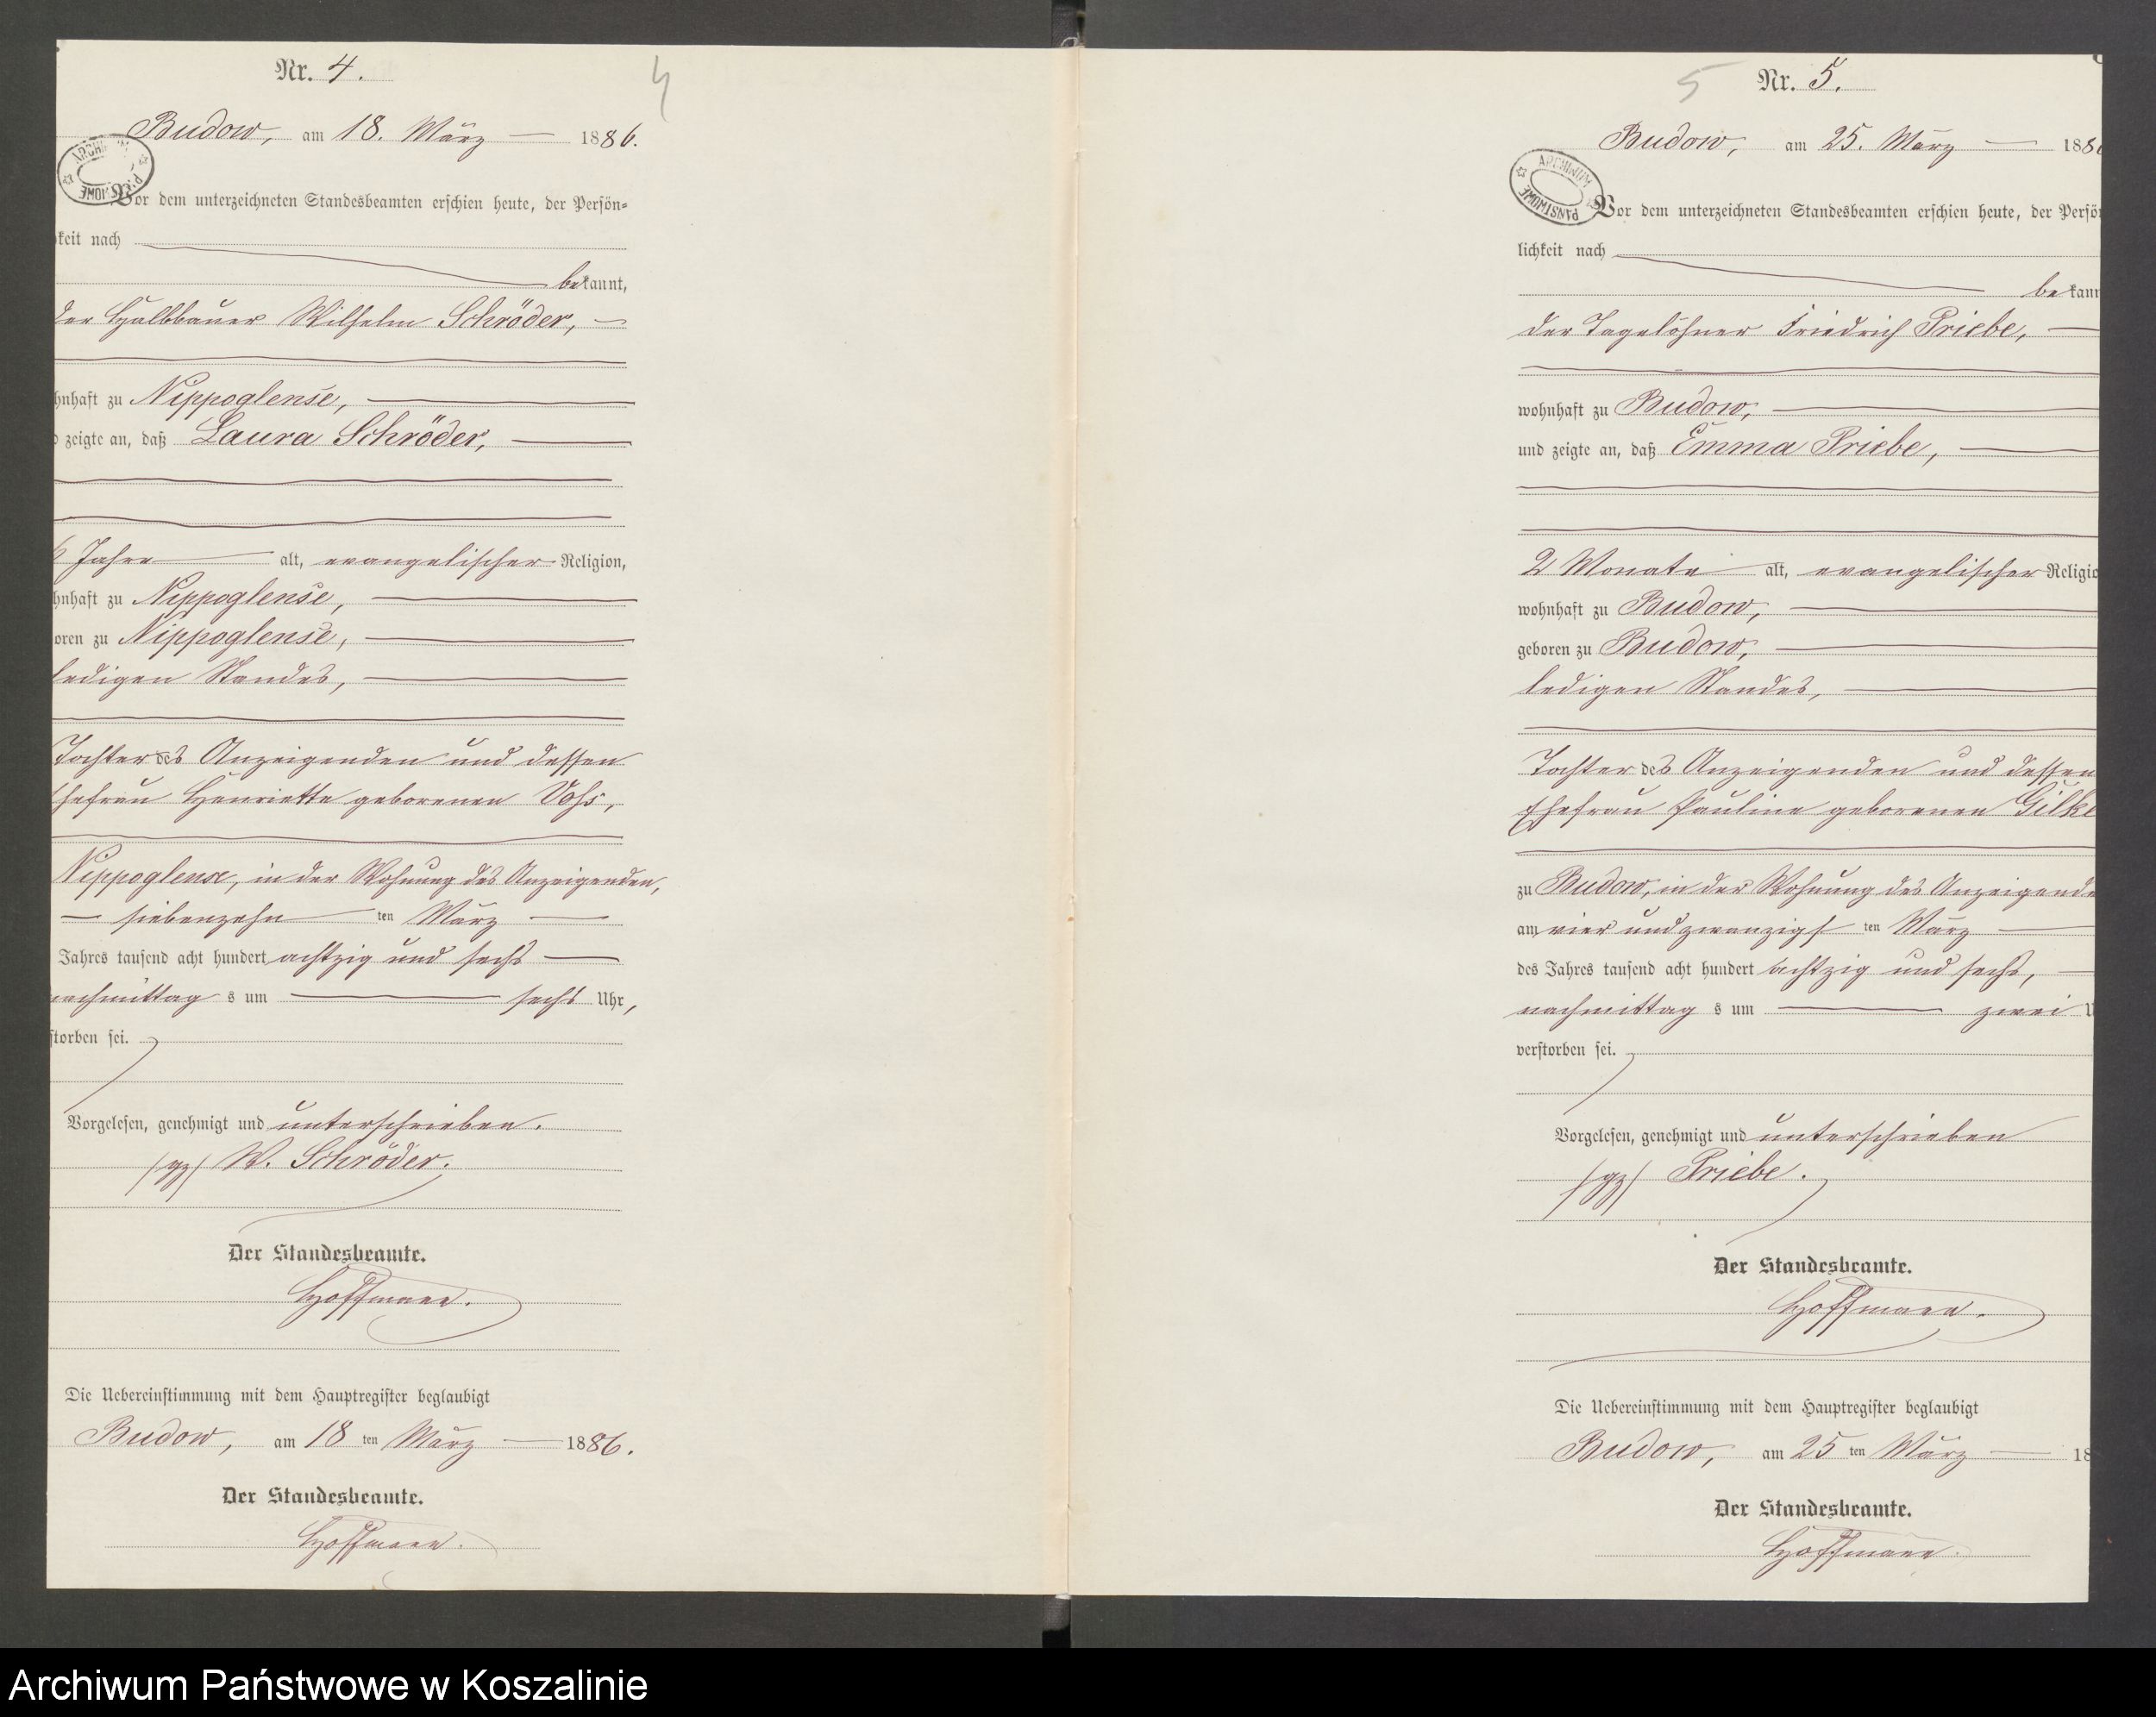 Nr. 4.
4
Budow, am 18. März 1886.
ARCHIWUM
Vor dem unterzeichneten Standesbeamten erschien heute, der Persön=
keit nach
bekannt,
der Halbbauer Wilhelm Schröder,
hnhaft zu Nippoglense,
zeigte an, daß Laura Schröder,
Jahre alt, evangelischer Religion,
hnhaft zu Nippoglense,
oren zu Nippoglense,
ledigen Standes,
Tochter des Anzeigenden und dessen
Ehefrau Henriette geborenen Vohs,
Nippoglense, in der Wohnung des Anzeigenden,
siebenzehn ten März
Jahres tausend acht hundert achtzig und sechs
nachmittag s um sechs Uhr,
storben sei.
Vorgelesen, genehmigt und unterschrieben.
/gz/ W. Schröder.
Der Standesbeamte.
Hoffmann.
Die Uebereinstimmung mit dem Hauptregister beglaubigt
Budow, am 18 ten März 1886.
Der Standesbeamte.
Hoffmann.
5
Nr. 5.
Budow, am 25. März 188
ARCHIWUM PAŃSTWOWE
Vor dem unterzeichneten Standesbeamten erschien heute, der Persön
lichkeit nach
bekann
der Tagelöhner Friedrich Priebe,
wohnhaft zu Budow,
und zeigte an, daß Emma Priebe,
2 Monate alt, evangelischer Religio
wohnhaft zu Budow,
geboren zu Budow,
ledigen Standes,
Tochter des Anzeigenden und dessen
Ehefrau Pauline geborenen Gilke
zu Budow, in der Wohnung des Anzeigende
am vier und zwanzigs ten März
des Jahres tausend acht hundert achtzig und sechs,
nachmittag s um zwei U
verstorben sei.
Vorgelesen, genehmigt und unterschrieben
/gz/ Priebe.
Der Standesbeamte.
Hoffmann.
Die Uebereinstimmung mit dem Hauptregister beglaubigt
Budow, am 25 ten März 18
Der Standesbeamte.
Hoffmann.
Archiwum Państwowe w Koszalinie